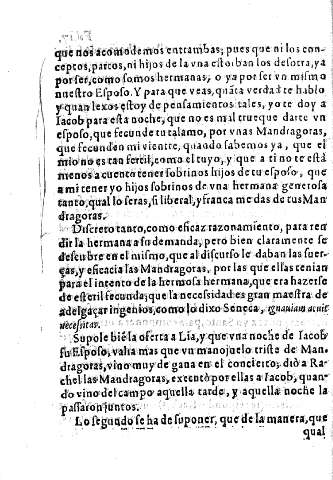 que nos acomodemos entrambas; pues que ni los con-
ceptos, partos, ni hijos de la vna estorban los de sotra, ya
por ser, como somos hermanas, o ya por ser vn mismo
nuestro Esposo. Y para que veas, quãta verdad te hablo
y quan lexos estoy de pensamientos tales, yo te doy a
Iacob para esta noche, que no es mal trueque darte vn
esposo, que fecunde tu talamo, por vnas Mandragoras,
que fecunden mi vientre, quando sabemos ya, que el
mio no es tan fertil, como el tuyo, y que a ti no te está
menos a cuento tener sobrinos hijos de tu esposo, que
a mi tener yo hijos sobrinos de vna hermana generosa
tanto, qual lo seras, si liberal, y franca me das de tus Man
dragoras.
Discreto tanto, como eficaz razonamiento, para ren
dir la hermana a su demanda, pero bien claramente se
descubre en el mismo, que al discurso le daban las fuer-
ças, y eficacia las Mandragoras, por las que ellas tenian
para el intento de la hermosa hermana, que era hazerse
de esteril fecunda; que la necesidad es gran maestra de
adelgaçar ingenios, como lo dixo Seneca, ignauiam acuit
necesitas.
Supole biẽ la oferta a Lia, y que vna noche de Iacob
su Esposo, valia mas que vn manojuelo triste de Man-
dragoras, vino muy de gana en el concierto; dió a Ra-
chel las Mandragoras, executò por ellas a Iacob, quan-
do vino del campo aquella tarde, y aquella noche la
passaron juntos.
Lo segundo se ha de suponer, que de la manera, que
qual